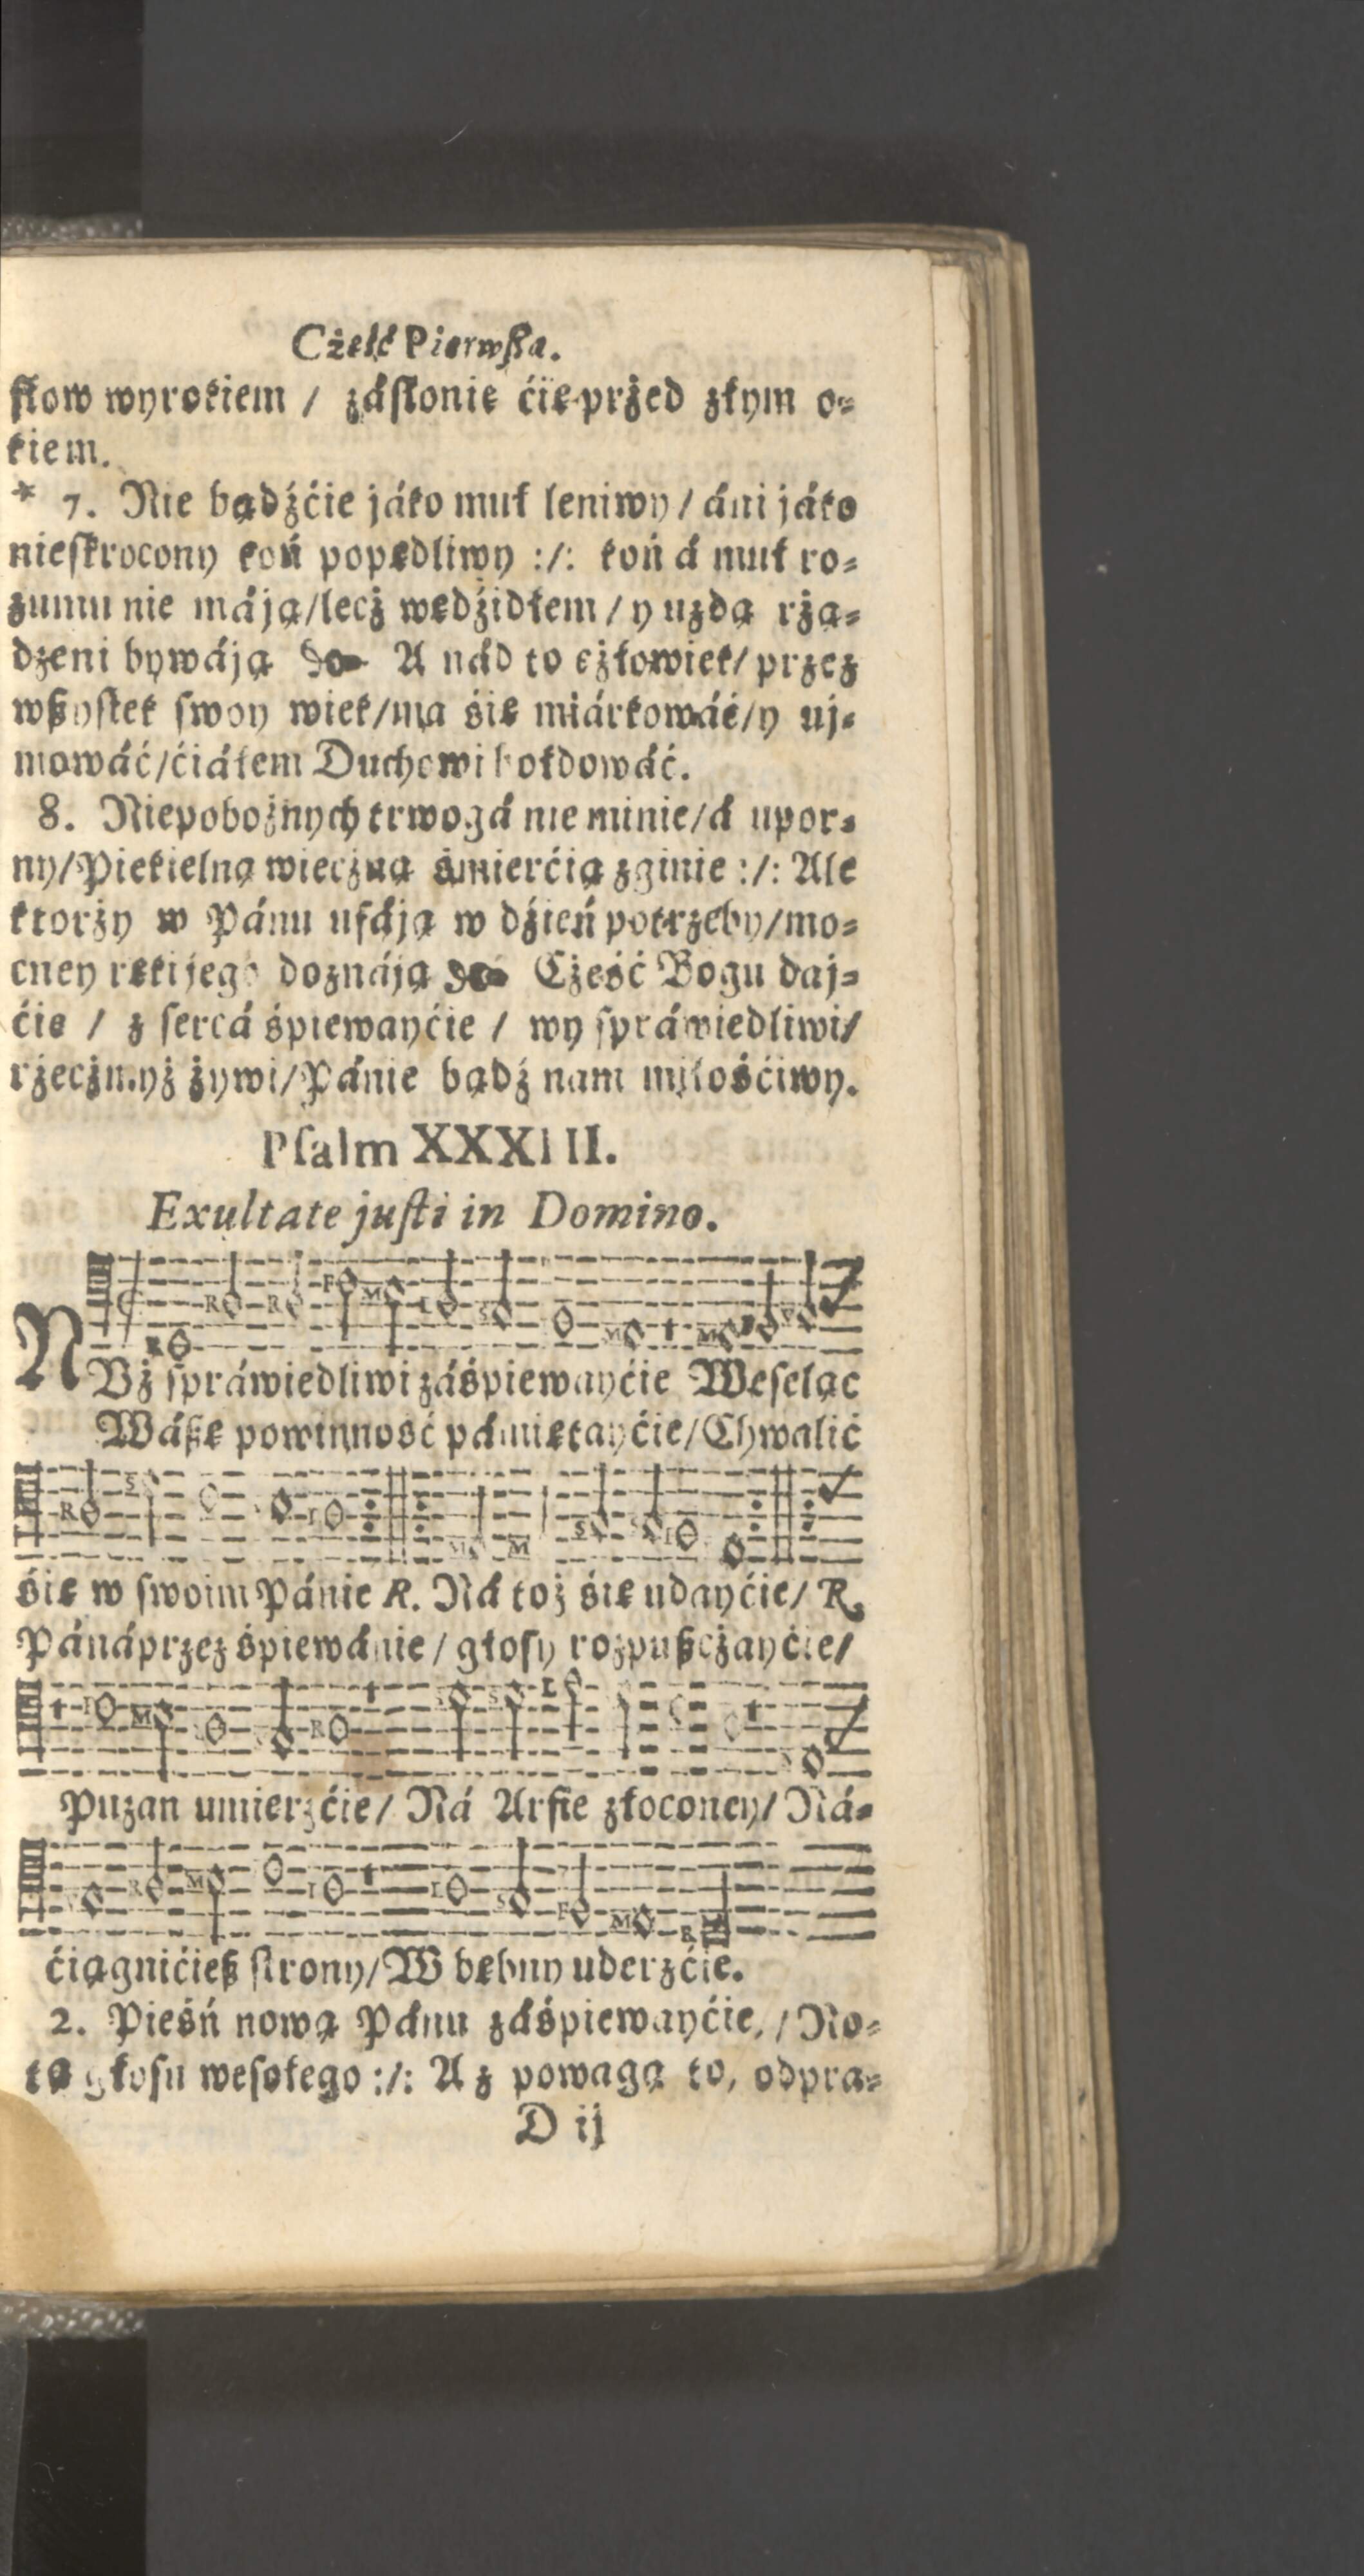 Cżęść Pierwßa.
słow wyrokiem / zásłonię ćię przed złym o⸗
kiem.
* 7. Nie bądźćie jáko muł leniwy / áni jáko
nieskrocony koń popędliwy :/: koń á muł ro⸗
zumu nie máją/lecż wędźidłem / y uzdą rżą⸗
dzeni bywáją A nád to cżłowiek/ przez
wßystek swoy wiek/ma śię miárkowáć/y uj⸗
mowáć/ćiáłem Duchowi hołdowáć.
8. Niepobożnych trwogá nie minie/á upor⸗
ny/Piekielną wiecżną śmierćią zginie :/: Ale
ktorży w Pánu ufáją w dźień potrzeby/mo⸗
cney ręki jego doznáją Cżeść Bogu daj⸗
ćie / z sercá śpiewayćie / wy spráwiedliwi/
rżecżmyż żywi/Pánie bądź nam miłośćiwy.
Psalm XXXIII.
Exultate justi in Domino.
NUż spráwiedliwi záśpiewayćie Weseląc
Wáßę powinność pámiętayćie/Chwalić
śię w swoim Pánie R. Ná toż śię udayćie/ R.
Páná przez śpiewánie / głosy rozpußcżayćie/
Puzan umierzćie/ Ná Arfie złoconey/ Ná⸗
ćiągnićieß strony/W bębny uderzćie.
2. Pieśń nową Pánu záśpiewayćie, / No⸗
tą głosu wesołego :/: A z powagą to, odpra⸗
D ij